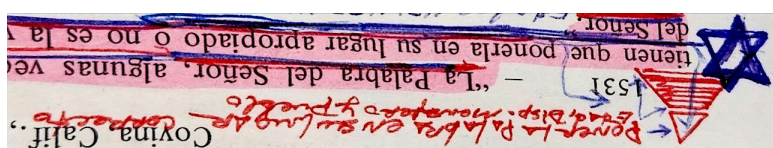 Covina, Calif.,
PONER LA PALABRA EN SU LUGAR CORRECTO
EDAD, DISP. MENSAJERO Y PUEBLO
1531 – “La Palabra del Señor, algunas vec
tienen que ponerla en su lugar apropiado o no es la v
del Señor”.